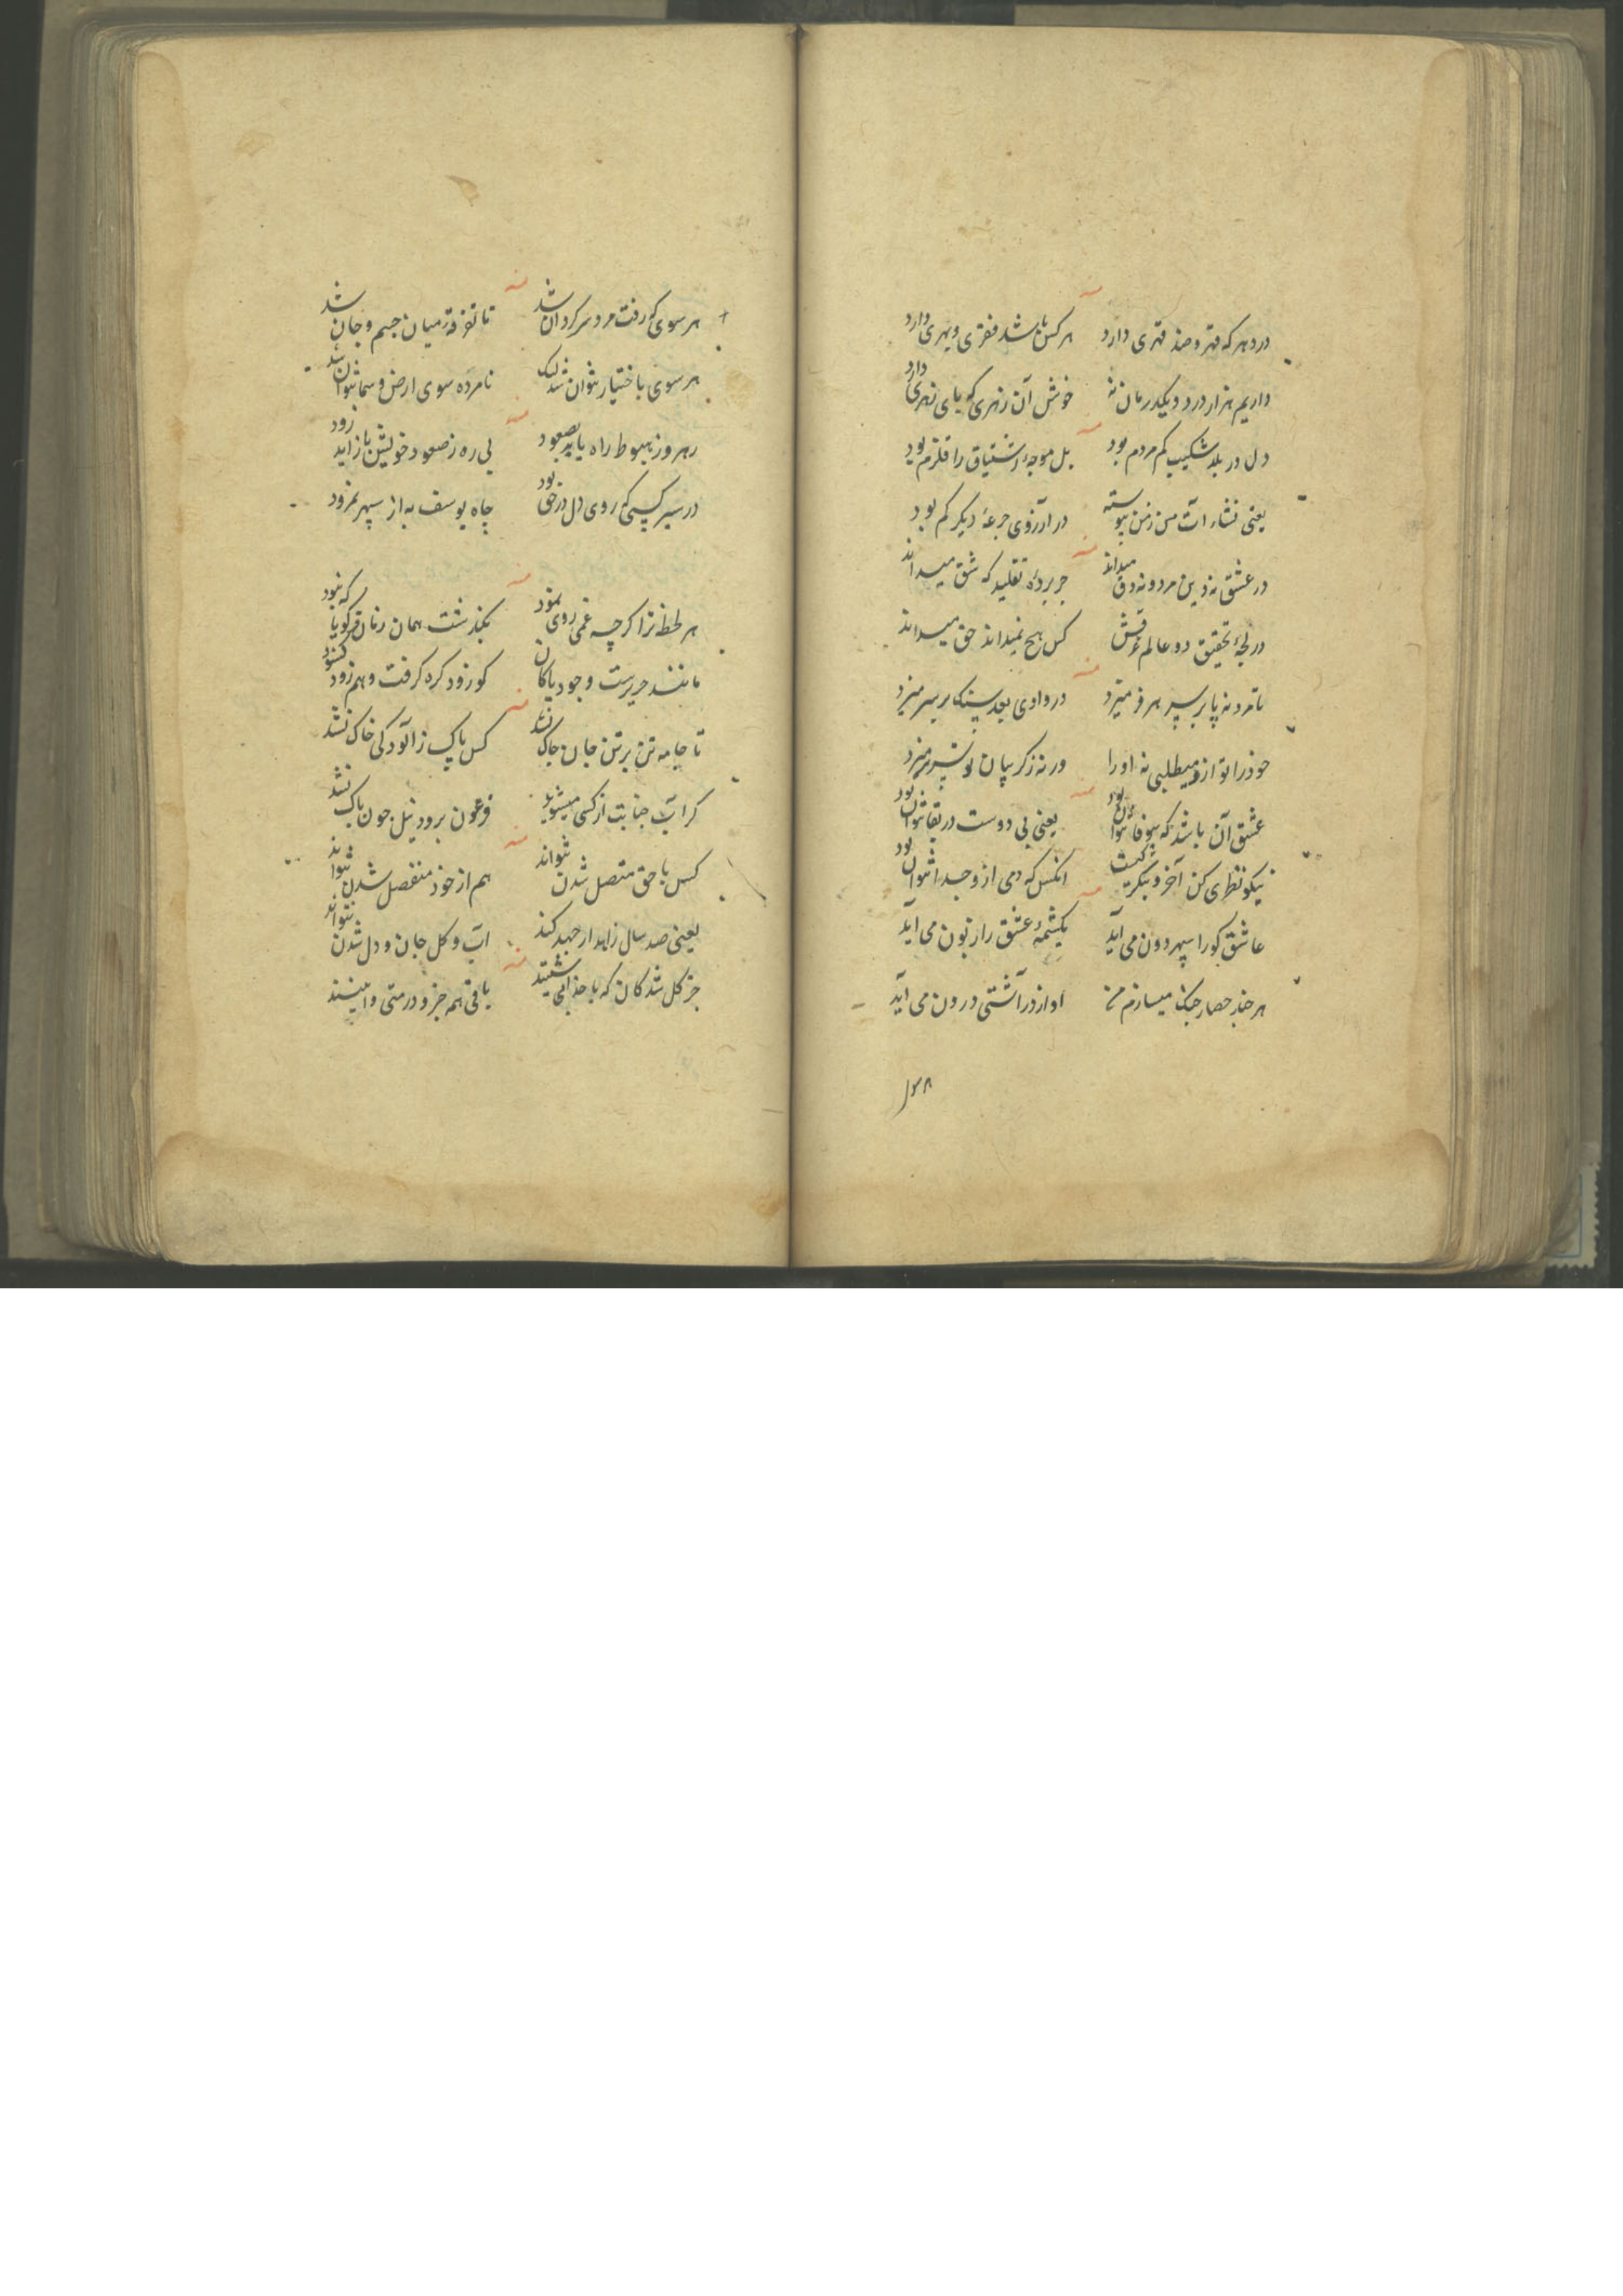 در دهر که قهر و ضد قهری دارد هر کس باشد فقری و بهری دارد
داریم هزار درد و یکدرمان نه خوش آن زهری که پای زهری دارد
دل در بلد شکیب کم مردم بود بل موجهٔ اشتیاق را قلزم بود
یعنی نشاء آت من زمن پیوسته در آرزوی جرعهٔ دیگر کم بود
در عشق نه دین مرد و نه دق میداند جز بردهٔ تقلید که شق میداند
در لجهٔ تحقیق دو عالم کس هیچ نمیداند حق میداند
تا مرد نه پا بر سر هر در وادی بعد سنک بر سر میزد
خود را تو ازو میطلبی نه او را ورنه ز کریبان تو سر بر میزد
عشق آن باشد که بیوفا نتوان بود یعنی بی دوست در بقا نتوان بود
نیکو نظری کن آخر و بنکر کیست انکس که دمی ازو جدا نتوان بود
عاشق کو را سپهر دون می آید یکشمهٔ عشق را زبون می آید
هر چند حصار جنک میسازم من او از در آشتی درون می آید
۱۳۸
هر سوی که رفت مرد سرکردان شد تا تفرقه میان جسم و جان شد
هر سوی باختیار نتوان شد لیک نامرده سوی ارض و سما نتوان شد
رهرو ز هبوط راه یابد بصعود بی ره ز صعود خویشتن باز آید زود
در سیر کسی که روی دل در حق بود چاه یوسف به از سپهر نمرود
هر لحظه ترا کرچه غمی روی نمود بگذشت همان زمان که کویا که نبود
مانند حریرست وجود پاکان کو زود کره کرفت و هم زود کشود
تا جامه تن برتن جان چاک نشد کس پاک ز آلودکی خاک نشد
کر آب جنابت از کسی میشوید فرعون برود نیل چون پاک نشد
کس با حق متصل شدن نتواند هم از خود منفصل شدن نتواند
یعنی صد سال زاهد ار جهد کند آب و کل جان و دل شدن نتواند
جز کل شدکان که با خدا باقی همه جزو در منی و